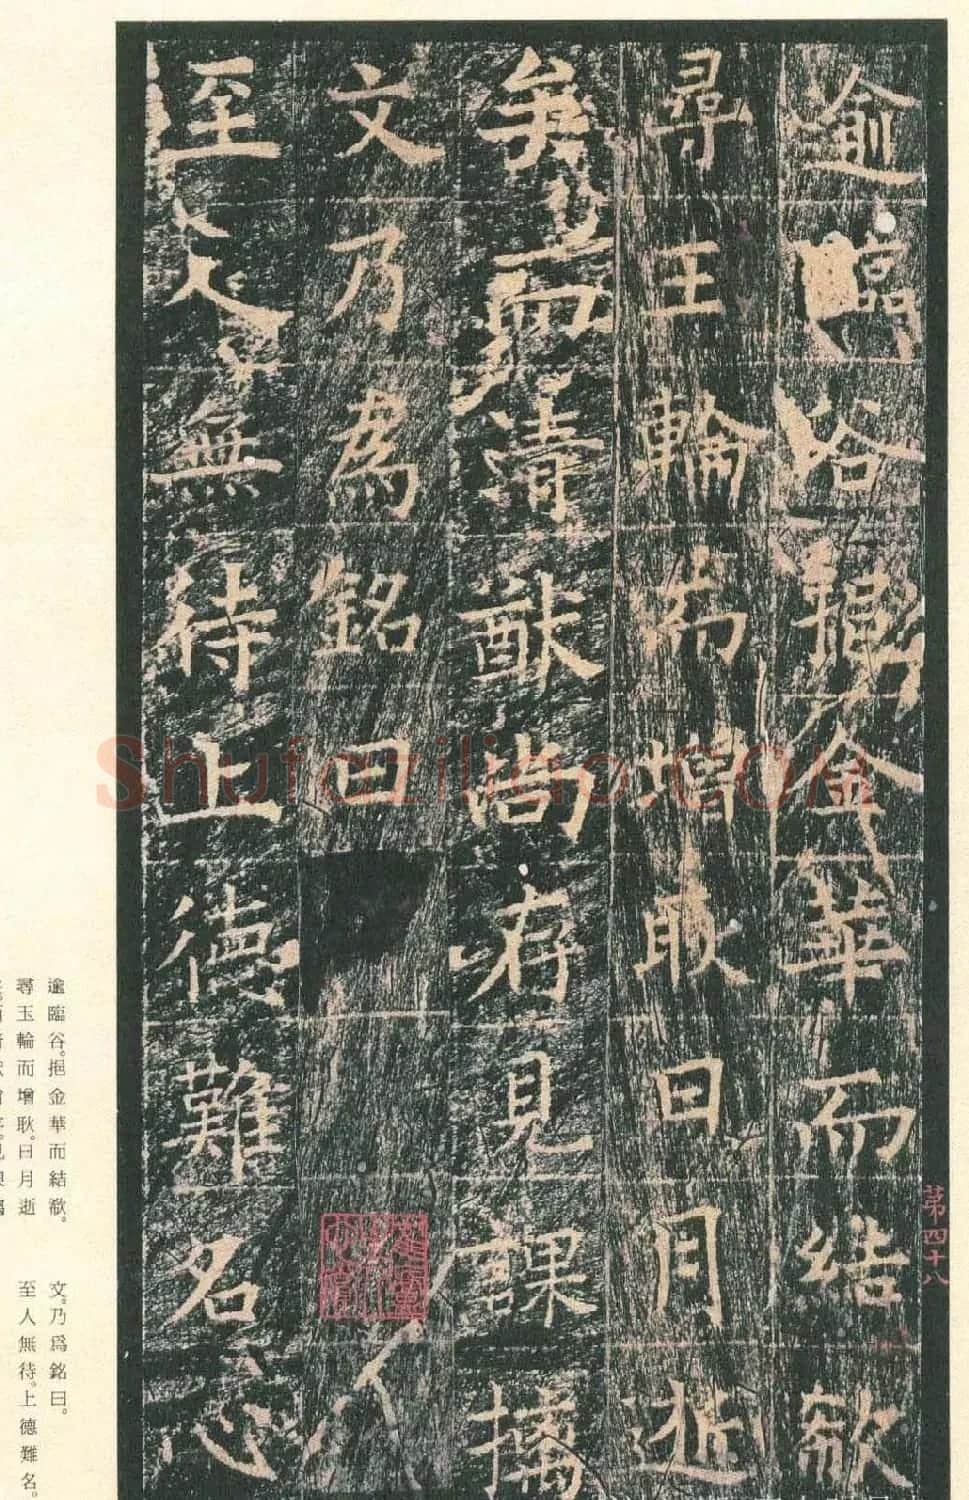 逾臨谷挹金華而結欷
尋玉輪而增耿日月逝
矣而清猷尚存見課摛
文乃爲銘曰
至人無待上德難名心
第四十八
逾臨谷。挹金華而結欷。
尋玉輪而增耿。日月逝
文。乃爲銘曰。
至人無待。上德難名。
Shufaziliao.COM